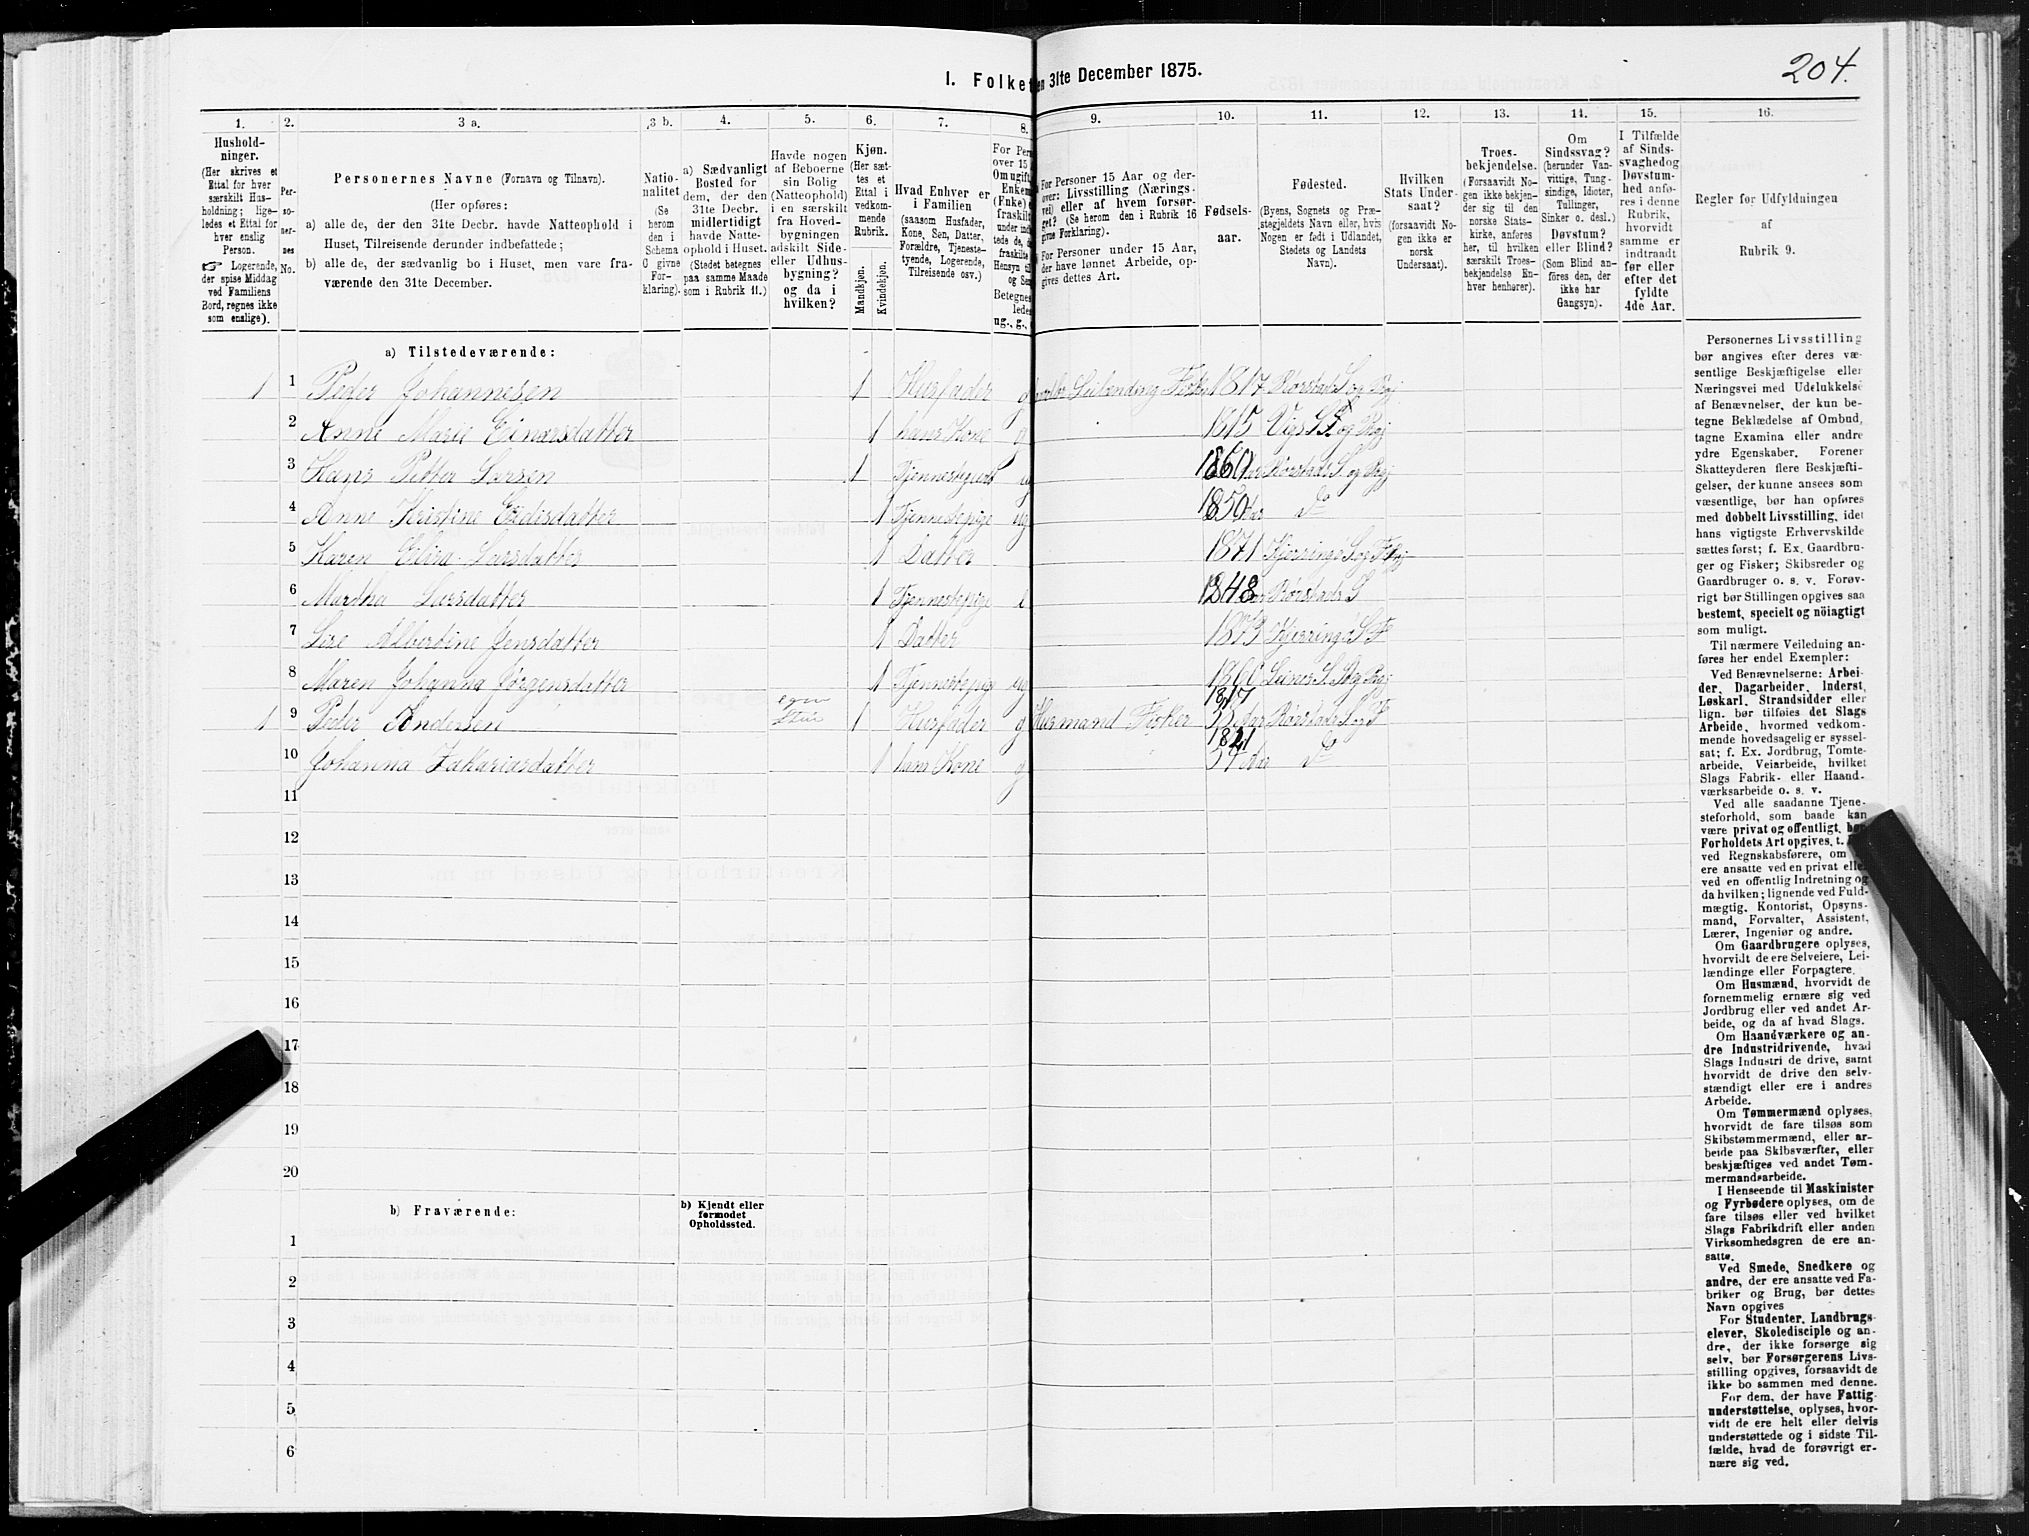 204.
I. Folke
en 31te December 1875.
1. 2. 3 a. 3 b. 4. 5. 6. 7. 8. 9. 10. 11. 12. 13. 14. 15. 16.
Hushold-
ninger.
(Her skrives et
Ettal for hver
særskilt Hus-
holdning; lige-
ledes et Ettal for
hver enslig
Person.
☞ Logerende,
der spise Middag
ved Familiens
Bord, regnes ikke
som enslige).
Per-
so-
ner-
nes
No.
Personernes Navne (Fornavn og Tilnavn).
(Her opføres:
a) alle de, der den 31te Decbr. havde Natteophold i
Huset, Tilreisende derunder indbefattede;
b) alle de, der sædvanlig bo i Huset, men vare fra-
værende den 31te December.
Natio-
nalitet
(Se
herom
den i
Schema
C givne
For-
klaring).
a) Sædvanligt
Bosted for
dem, der den
31te Decbr.
midlertidigt
havde Natte-
ophold i Huset.
(Stedet betegnes
paa samme Maade
som i Rubrik 11.)
Havde nogen
af Beboerne
sin Bolig
(Natteophold)
i en særskilt
fra Hoved-
bygningen
adskilt Side-
eller Udhus-
bygning?
og da i
hvilken?
Kjøn.
(Her sæt-
tes et
Ettal i
vedkom-
mende
Rubrik.
Mandkjøn.
Kvindekjøn.
Hvad Enhver er
i Familien
(saasom Husfader,
Kone, Søn, Datter,
Forældre, Tjeneste-
tyende, Logerende,
Tilreisende osv.)
For Per
over 15
Om ugift,
Enkem
(Fnke)
fraskilt
under ind
tede de,
fraskilte
Hensyn til
og Sen
Betegnes
ledes
ug., g.,
For Personer 15 Aar og der-
over: Livsstilling (Nærings-
vei) eller af hvem forsør-
get? (Se herom den i Rubrik 16
givne Forklaring).
For Personer under 15 Aar,
der have lønnet Arbeide, op-
gives dettes Art.
Fødsels-
aar.
Fødested.
(Byens, Sognets og Præ-
stegjeldets Navn eller, hvis
Nogen er født i Udlandet,
Stedets og Landets
Navn).
Hvilken
Stats Under-
saat?
(forsaavidt No-
gen ikke er
norsk
Undersaat).
Troes-
bekjendelse.
(Forsaavidt No-
gen ikke bekjen-
der sig til den
norske Stats-
kirke, anføres
her, til hvilken
særskilt Troes-
bekjendelse En-
hver henhører).
Om
Sindssvag?
(herunder Van-
vittige, Tung-
sindige, Idioter,
Tullinger,
Sinker o. desl.)
Døvstum?
eller Blind?
(Som Blind an-
føres den, der
ikke har
Gangsyn).
I Tilfælde
af Sinds-
svaghed og
Døvstum-
hed anfø-
res i denne
Rubrik,
hvorvidt
samme er
indtraadt
før eller
efter det
fyldte
4de Aar.
Regler for Udfyldningen
af
Rubrik 9.
a) Tilstedeværende:
1 1 Peder Johannesen 1 Husfader g Leilending Fisker 1817 Rørstads S og Pgj
2 Anne Marie Einarsdatter 1 hans Kone g 1815 Vigs S og Pgj
3 Hans Petter Larsen 1 Tjenestegut ug 1860 Rørstads S og Pgj
4 Anne Kristine Eidisdatter 1 Tjenestepige ug 1850 do
5 Karen Elina Larsdatter 1 Datter 1871 Kjerringø S og Pgj
6 Martha Larsdatter 1 Tjenestepige e 1848 Rørstads S
7 Lise Albertine Jensdatter 1 Datter 1873 Kjerringø S
8 Maren Johanna Jørgensdatter 1 Tjenestepige ug 1860 Leines S og Pgj
1 9 Peder Andersen egen Stue 1 Husfader g Husmand Fisker 1817 Rørstads S og F
10 Johanna Zakariasdatter 1 hans Kone g 1821 54 Aar do
11
12
13
14
15
16
17
18
19
20
b) Fraværende:
b) Kjendt eller
formodet
Opholdssted.
1
2
3
4
5
6
Personernes Livsstilling
bør angives efter deres væ-
sentlige Beskjæftigelse eller
Næringsvei med Udelukkelse
af Benævnelser, der kun be-
tegne Beklædelse af Ombud,
tagne Examina eller andre
ydre Egenskaber. Forener
Skatteyderen flere Beskjæfti-
gelser, der kunne ansees som
væsentlige, bør han opføres
med dobbelt Livsstilling, idet
hans vigtigste Erhvervskilde
sættes først; f. Ex. Gaardbru-
ger og Fisker; Skibsreder og
Gaardbruger o. s. v. Forøv-
rigt bør Stillingen opgives saa
bestemt, specielt og nöiagtigt
som muligt.
Til nærmere Veiledning an-
føres her endel Exempler:
Ved Benævnelserne: Arbei-
der, Dagarbeider, Inderst,
Løskarl, Strandsidder eller
lign. bør tilføies det Slags
Arbeide, hvormed vedkom-
mende hovedsagelig er syssel-
sat; f. Ex. Jordbrug, Tomte-
arbeide, Veiarbeide, hvilket
Slags Fabrik- eller Haand-
værksarbeide o. s. v.
Ved alle saadanne Tjene-
steforhold, som baade kan
være privat og offentligt, bør
Forholdets Art opgives, t.
ved Regnskabsførere, om
ere ansatte ved en privat elle
ved en offentlig Indretning og
da hvilken; lignende ved Fuld-
mægtig, Kontorist, Opsyns-
mand, Forvalter, Assistent,
Lærer, Ingeniør og andre.
Om Gaardbrugere oplyses,
hvorvidt de ere Selveiere, Lei-
lændinge eller Forpagtere.
Om Husmænd, hvorvidt de
fornemmelig ernære sig ved
Jordbrug eller ved andet Ar-
beide, og da af hvad Slags.
Om Haandværkere og an-
dre Industridrivende, hvad
Slags Industri de drive, samt
hvorvidt de drive den selv-
stændigt eller ere i andres
Arbeide.
Om Tømmermænd oplyses,
hvorvidt de fare tilsøs som
Skibstømmermænd, eller ar-
beide paa Skibsværfter, eller
beskjæftiges ved andet Tøm-
mermandsarbeide.
I Henseende til Maskinister
og Fyrbødere oplyses, om de
fare tilsøs eller ved hvilket
Slags Fabrikdrift eller anden
Virksomhedsgren de ere an-
satte.
Ved Smede, Snedkere og
andre, der ere ansatte ved Fa-
briker og Brug, bør dettes
Navn opgives
For Studenter, Landbrugs-
elever, Skoledisciple og an-
dre, der ikke forsørge sig
selv, bør Forsørgerens Livs-
stilling opgives, forsaavidt de
ikke bo sammen med denne.
For dem, der have Fattig-
understøttelse, oplyses, hvor-
vidt de ere helt eller delvis
understøttede og i sidste Til-
fælde, hvad de forøvrigt er-
nære sig ved.